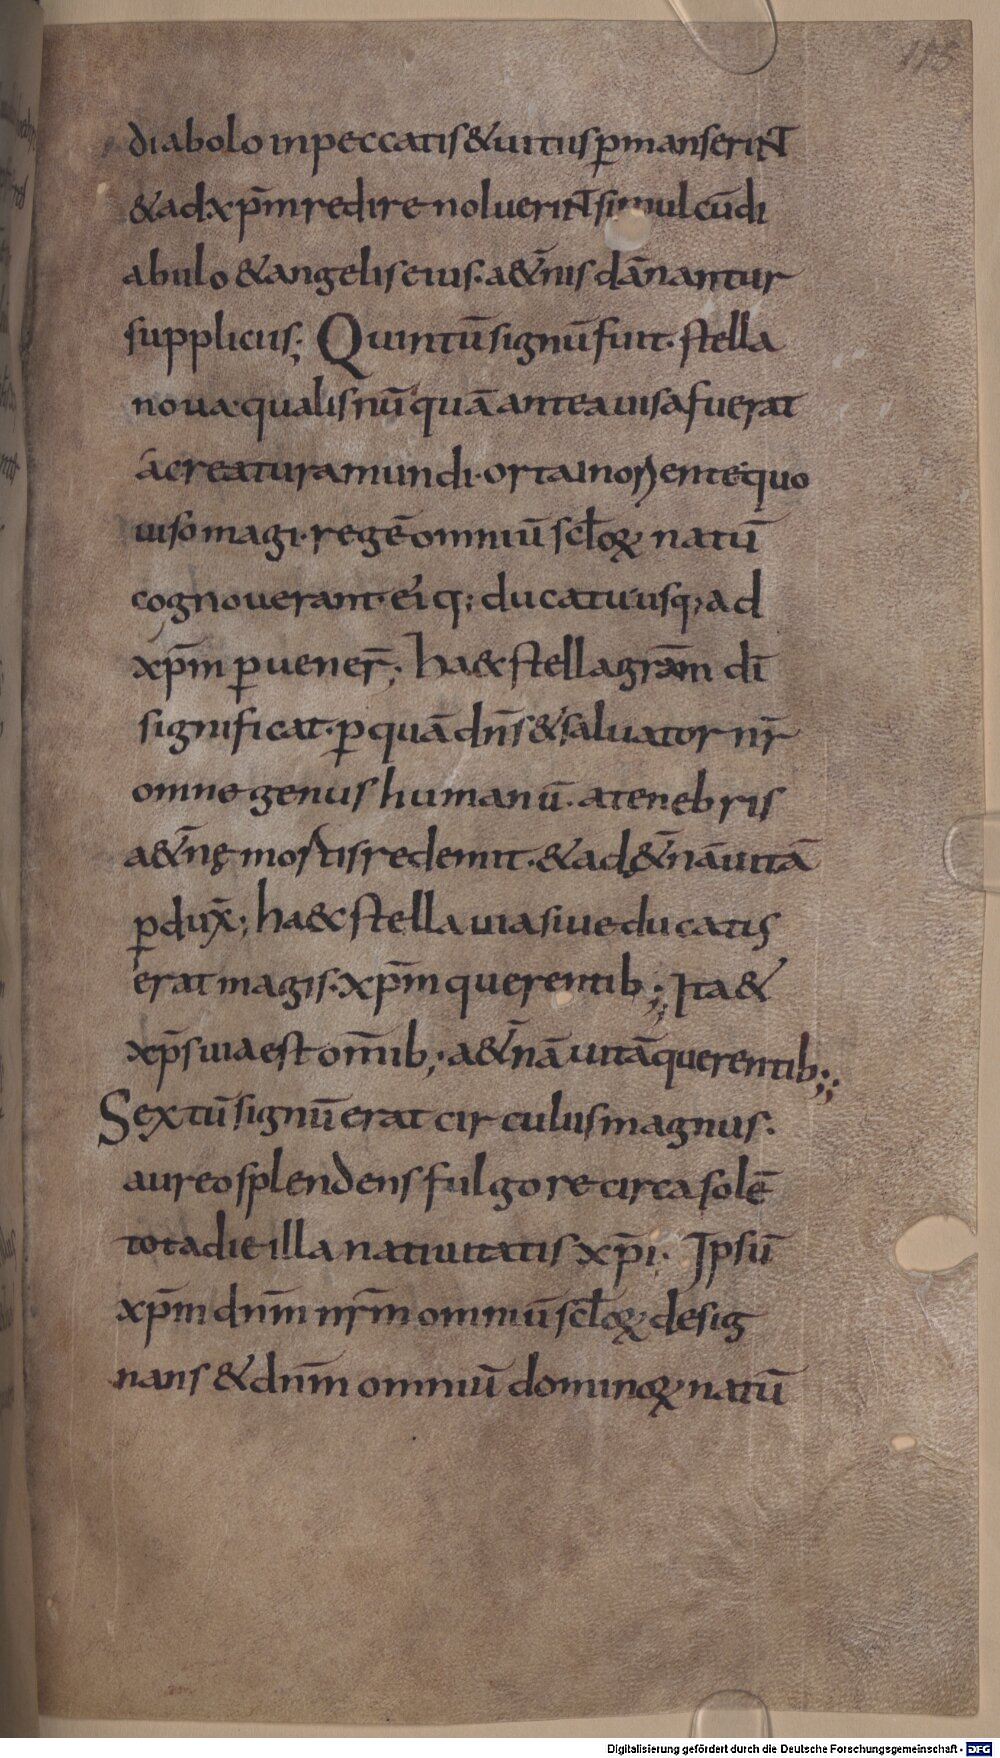 115
diabolo inpeccatis & uitiis p̄manserint
& ad xp̄m redire noluerint simul cū di
abulo & angelis eius · a&̄nis dānantur
suppliciis ; Quintū signū fuit · stella
noua · qualis nū quā antea uisa fuerat
a creatura mundi · orta in oriente · quo
uiso magi · regē omniū sc̄loꝝ natū
cognouerant · eiq; ducatu usq; ad
xp̄m puener̄ ; ha& stella grām dī
significat · p quā dn̄s & saluator nr̄
omne genus humanū · a tenebris
a&̄nę mortis redemit · & ad &̄nā uitā
pdux̄ ; ha& stella uia siue ducatis
erat magis · xp̄m querentib ; Ita &
xp̄s uia est om̄ib ; a&̄nā uitā querentib ;
Sextū signū erat circulus magnus ·
aureo splendens fulgore circa solē
tota die illa natiuitatis xp̄i · Ipsū
xp̄m dn̄m nr̄m omniū sc̄loꝝ desig
nans & dn̄m omniū dominoꝝ natū
Digitalisierung gefördert durch die Deutsche Forschungsgemeinschaft - DFG